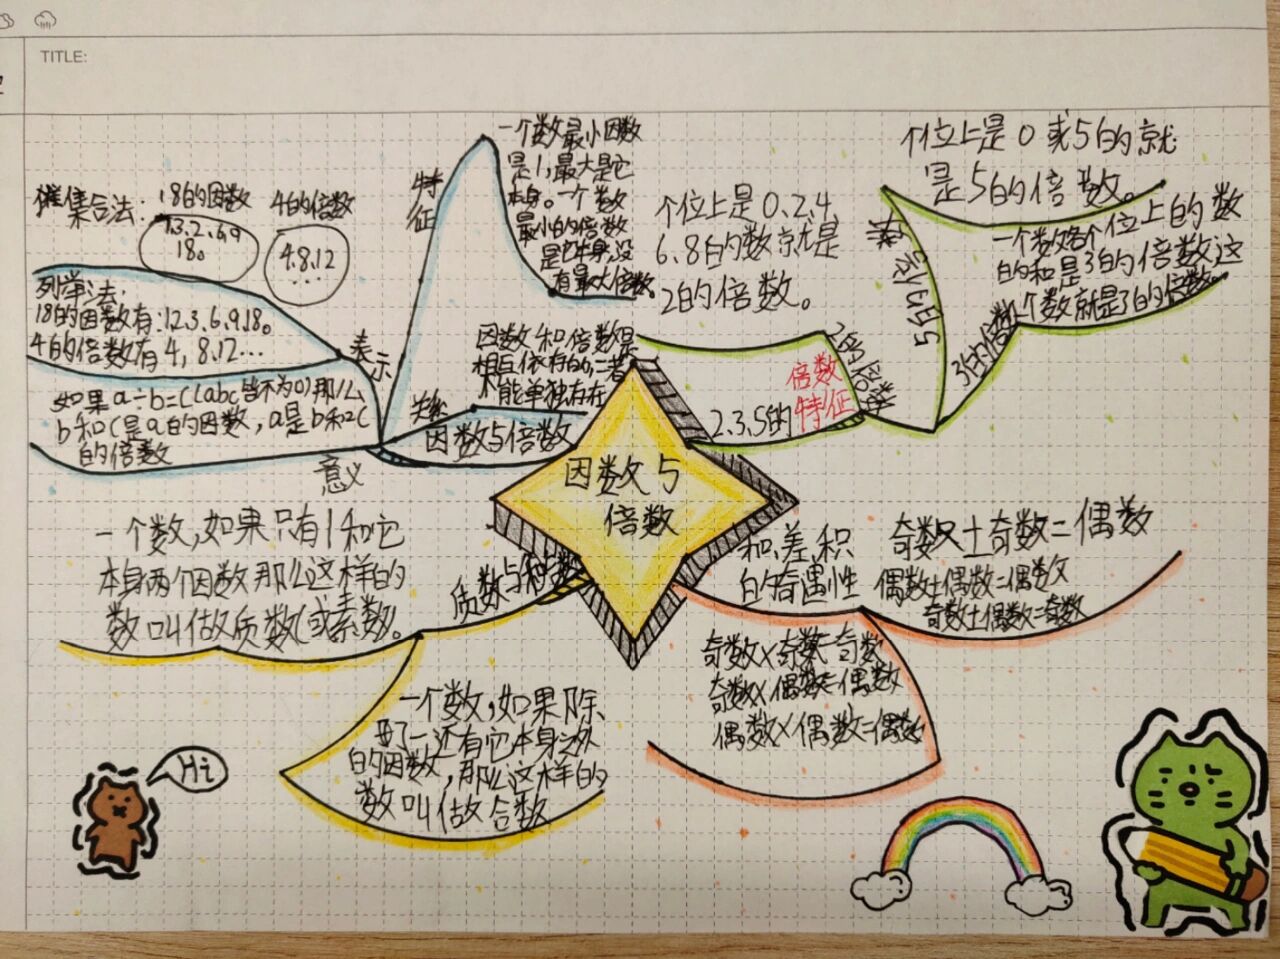 TITLE:
集合法:
18的因数
1.3.2.6.9
18。
4的倍数
4.8.12
...
列举法:
18的因数有:1.2.3.6.9.18。
4的倍数有4,8.12...
表示
如果a÷b=c(abc皆不为0)那么
b和c是a的因数,a是b和c
的倍数
意义
特征
一个数最小因数
是1,最大是它
本身。一个数
最小的倍数
是它本身,没
有最大倍数。
因数和倍数是
相互依存的,二者
不能单独存在
关系
因数与倍数
因数与
倍数
个位上是0.2.4.
6.8的数就是
2的倍数。
2的倍数
2.3.5的
倍数
特征
个位上是0或5的就
是5的倍数。
5的倍数
一个数各个位上的数
的和是3的倍数这
个数就是3的倍数。
3的倍数
质数与和数
一个数,如果只有1和它
本身两个因数那么这样的
数叫做质数(或素数。
一个数,如果除
了一还有它本身之外
的因数,那么这样的
数叫做合数
和.差.积
的奇遇性
奇数±奇数=偶数
偶数±偶数=偶数
奇数±偶数=奇数
奇数×奇数=奇数
奇数×偶数=偶数
偶数×偶数=偶数
Hi